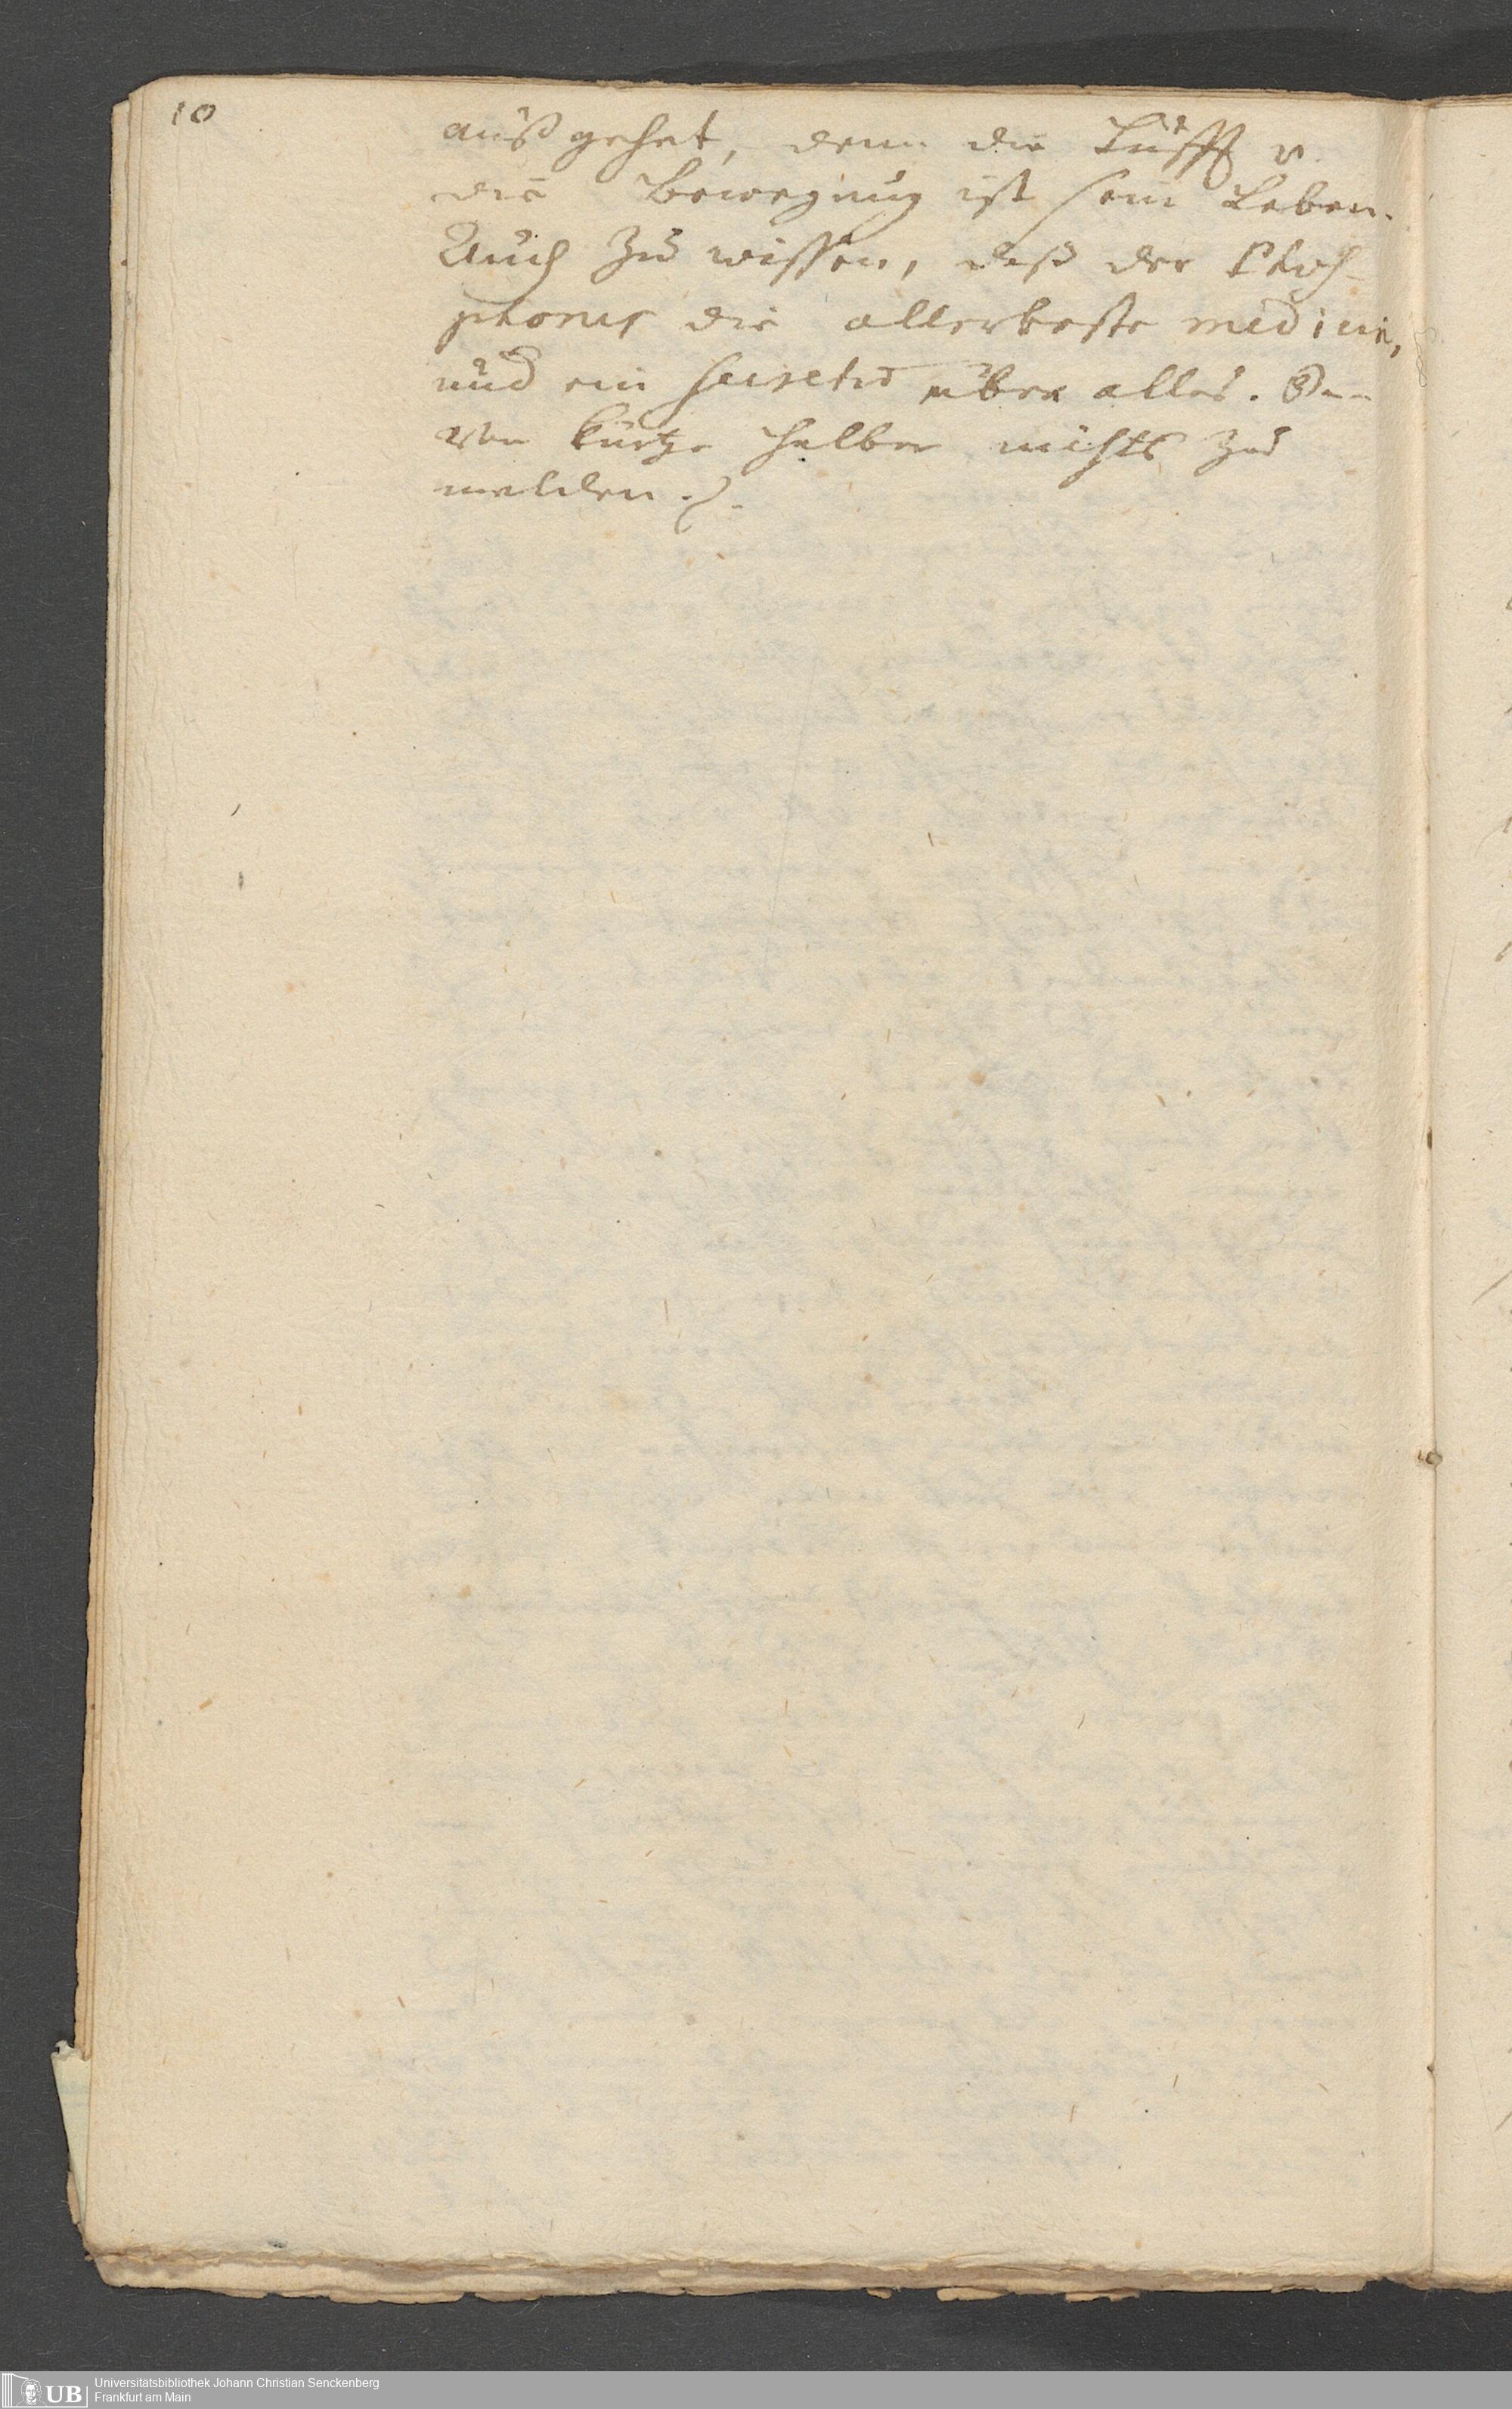 10
auß gehet, denn die Lufft v.
die Bewegung ist sein Leben.
Auch zu wissen, daß der Phos-
phorus die allerbeste medicin,
und ein secretū über alles. Da-
von kürtze halber nichts zu
melden.
UB Universitätsbibliothek Johann Christian Senckenberg
Frankfurt am Main